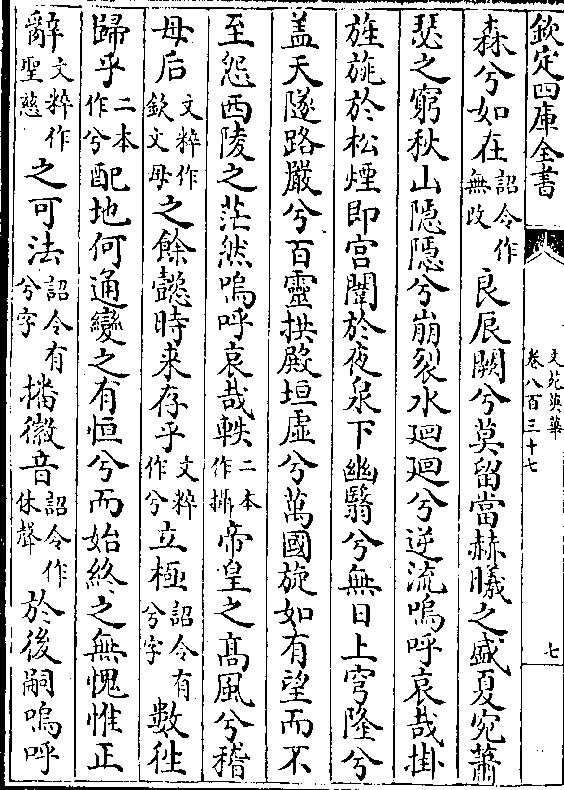 欽定四庫全書
文苑英華
卷八百三十七
七
森兮如在詔令作無改良辰闕兮莫留當赫曦之盛夏宛蕭
瑟之窮秋山隱隱兮崩裂水迴迴兮逆流嗚呼哀哉掛
旌旐於松煙即宮闈於夜泉下幽翳兮無日上穹隆兮
盖天隧路嚴兮百靈拱殿垣虛兮萬國旋如有望而不
至怨西陵之茫然嗚呼哀哉軼二本作掤帝皇之高風兮稽
母后文粹作欽文母之餘懿時来存乎文粹作兮立極詔令有兮字數往
歸乎二本作兮配地何通變之有恒兮而始終之無愧惟正
辭文粹作聖慈之可法詔令有兮字播徽音詔令作休聲於後嗣嗚呼